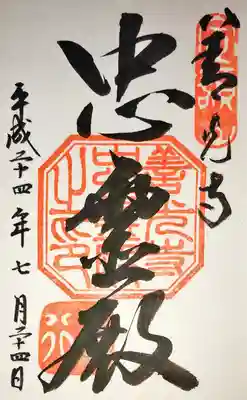 善光寺
忠霊殿
平成二十四年七月二十四日